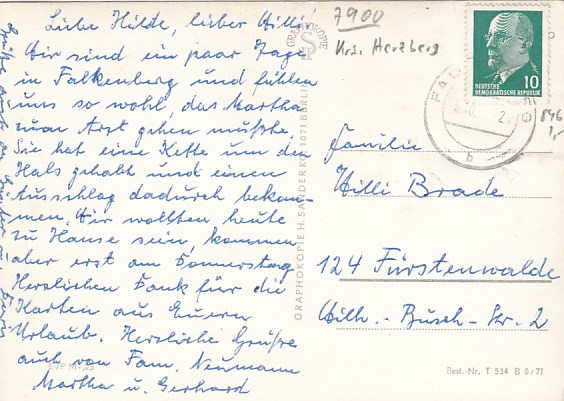 Liebe Hilde, lieber Willi!
Wir sind ein paar Tage
in Falkenberg und fühlen
uns so wohl, das Martha
zum Arzt gehen mußte.
Sie hat eine Kette um den
Hals gehabt und einen
Ausschlag dadurch bekom-
men. Wir wollten heute
zu Hause sein, kommen
aber erst am Donnerstag
Herzlichen Dank für die
Karten aus Euern
Urlaub. Herzliche Grüße
auch von Fam. Neumann
Martha u. Gerhard
E/7P M-25
GRAPHOKOPIE
GRAPHOKOPIE H. SANDER KG 1071 BERLIN
7900
Krs. Herzberg
DEUTSCHE
DEMOKRATISCHE REPUBLIK
10
b
846
1,-
Familie
Willi Brade
124 Fürstenwalde
Wilh.-Busch-Str. 2
Best.-Nr. T 534 B 8/71